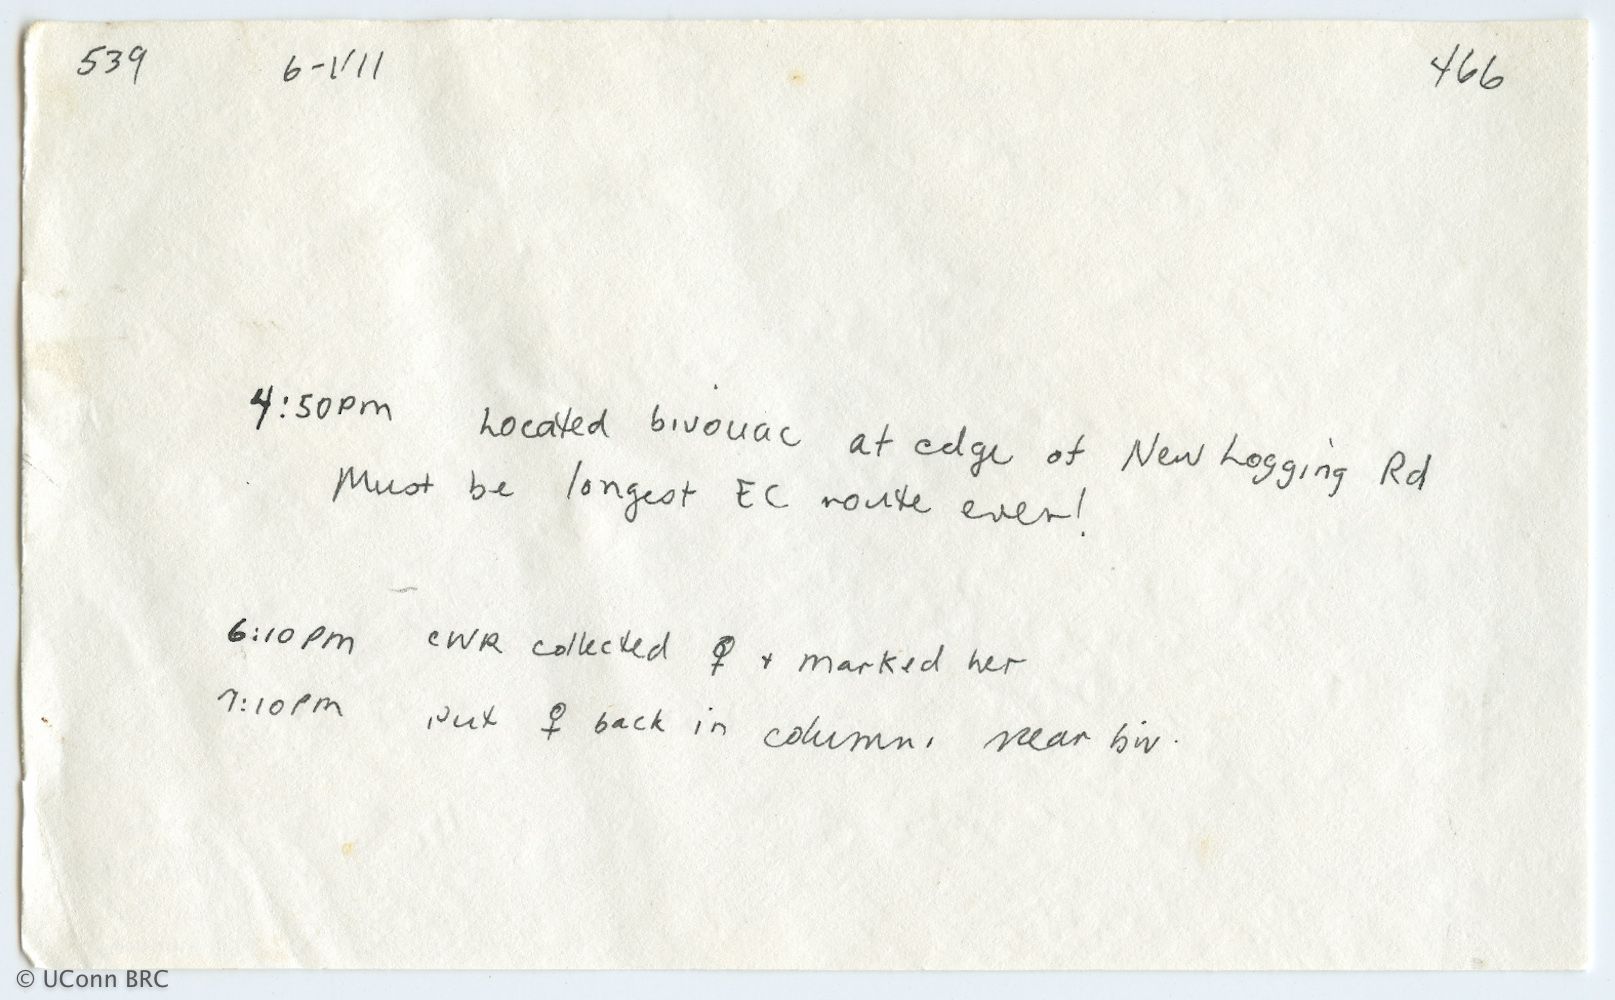 539 6-VII 466
4:50pm Located bivouac at edge of New Logging Rd
Must be longest EC route ever!
6:10pm CWR collected ♀ + marked her
7:10pm Put ♀ back in column, near biv.
© UConn BRC